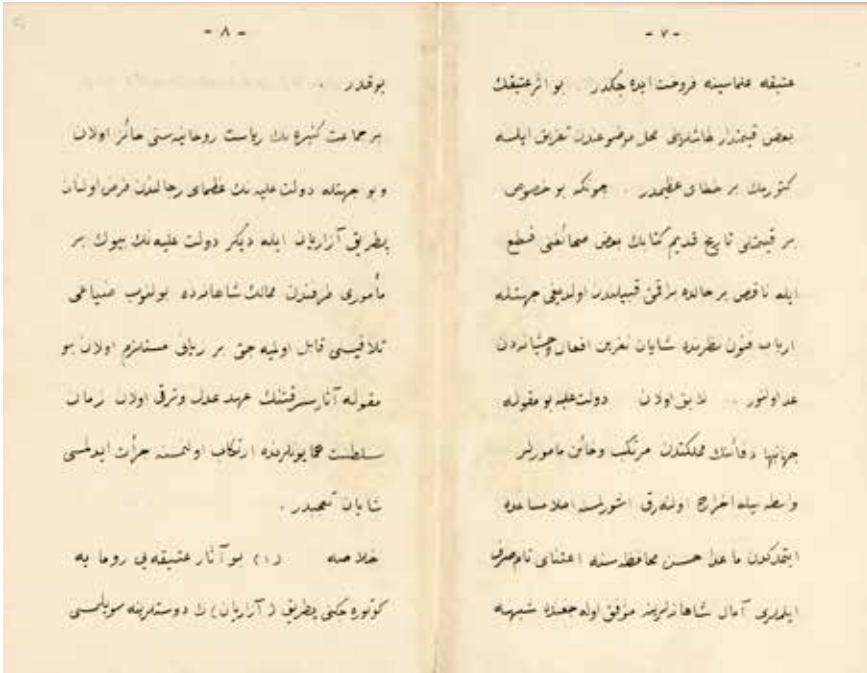 - ٧ -
عتیقه علماسینه فروخت ایده جكدر بو اثر عتیقك
بعض قیمتدار طاشلرینی محل موضوعندن تفریق ایله
كتورمك بر خطای عظیمدر . چونكه بو خصوص
بر قیمتلی تاریخ قدیم كتابك بعض صحائفنی قطع
ایله ناقص بر حالده براقمق قبیلندن اولدیغی جهتله
ارباب فنون نظرنده شایان نفرین افعال وحشیانه‌دن
عد اولنور .. لایق اولان دولت علیه بو مقوله
جهانبها دفائنك مملكتدن مرتكب وخائن مأمورلر
واسطه سیله اخراج اولنه‌رق اشورلمسنه اصلا مساعده
ایتمدكدن ماعدا حسن محافظه سنه اعتنای تام صرف
ایلملری آمال شاهانه‌لرینه موفق اوله جغنده شبهه
- ٨ -
یوقدر .
بر جماعت كثیره نك ریاست روحانیه سنی حائز اولان
وبو جهتله دولت علیه نك عظمای رجالندن فرض اولنان
پطریق آزاریان ایله دیكر دولت علیه نك بیوك بر
مأموری طرفندن ممالك شاهانه‌ده بولنوب ضیاعی
تلافیسی قابل اولمیه جق بر زیانی مستلزم اولان بو
مقوله آثار سرقتنك عهد عدل وترقی اولان زمان
سلطنت همایونلرنده ارتكاب اولنمسنه جرأت ایدلمسی
شایان تعجبدر .
خلاصه (١) بو آثار عتیقه یی روما یه
كوتوره جكنی پطریق (آزاریان) ك دوستلرینه سویلمسی